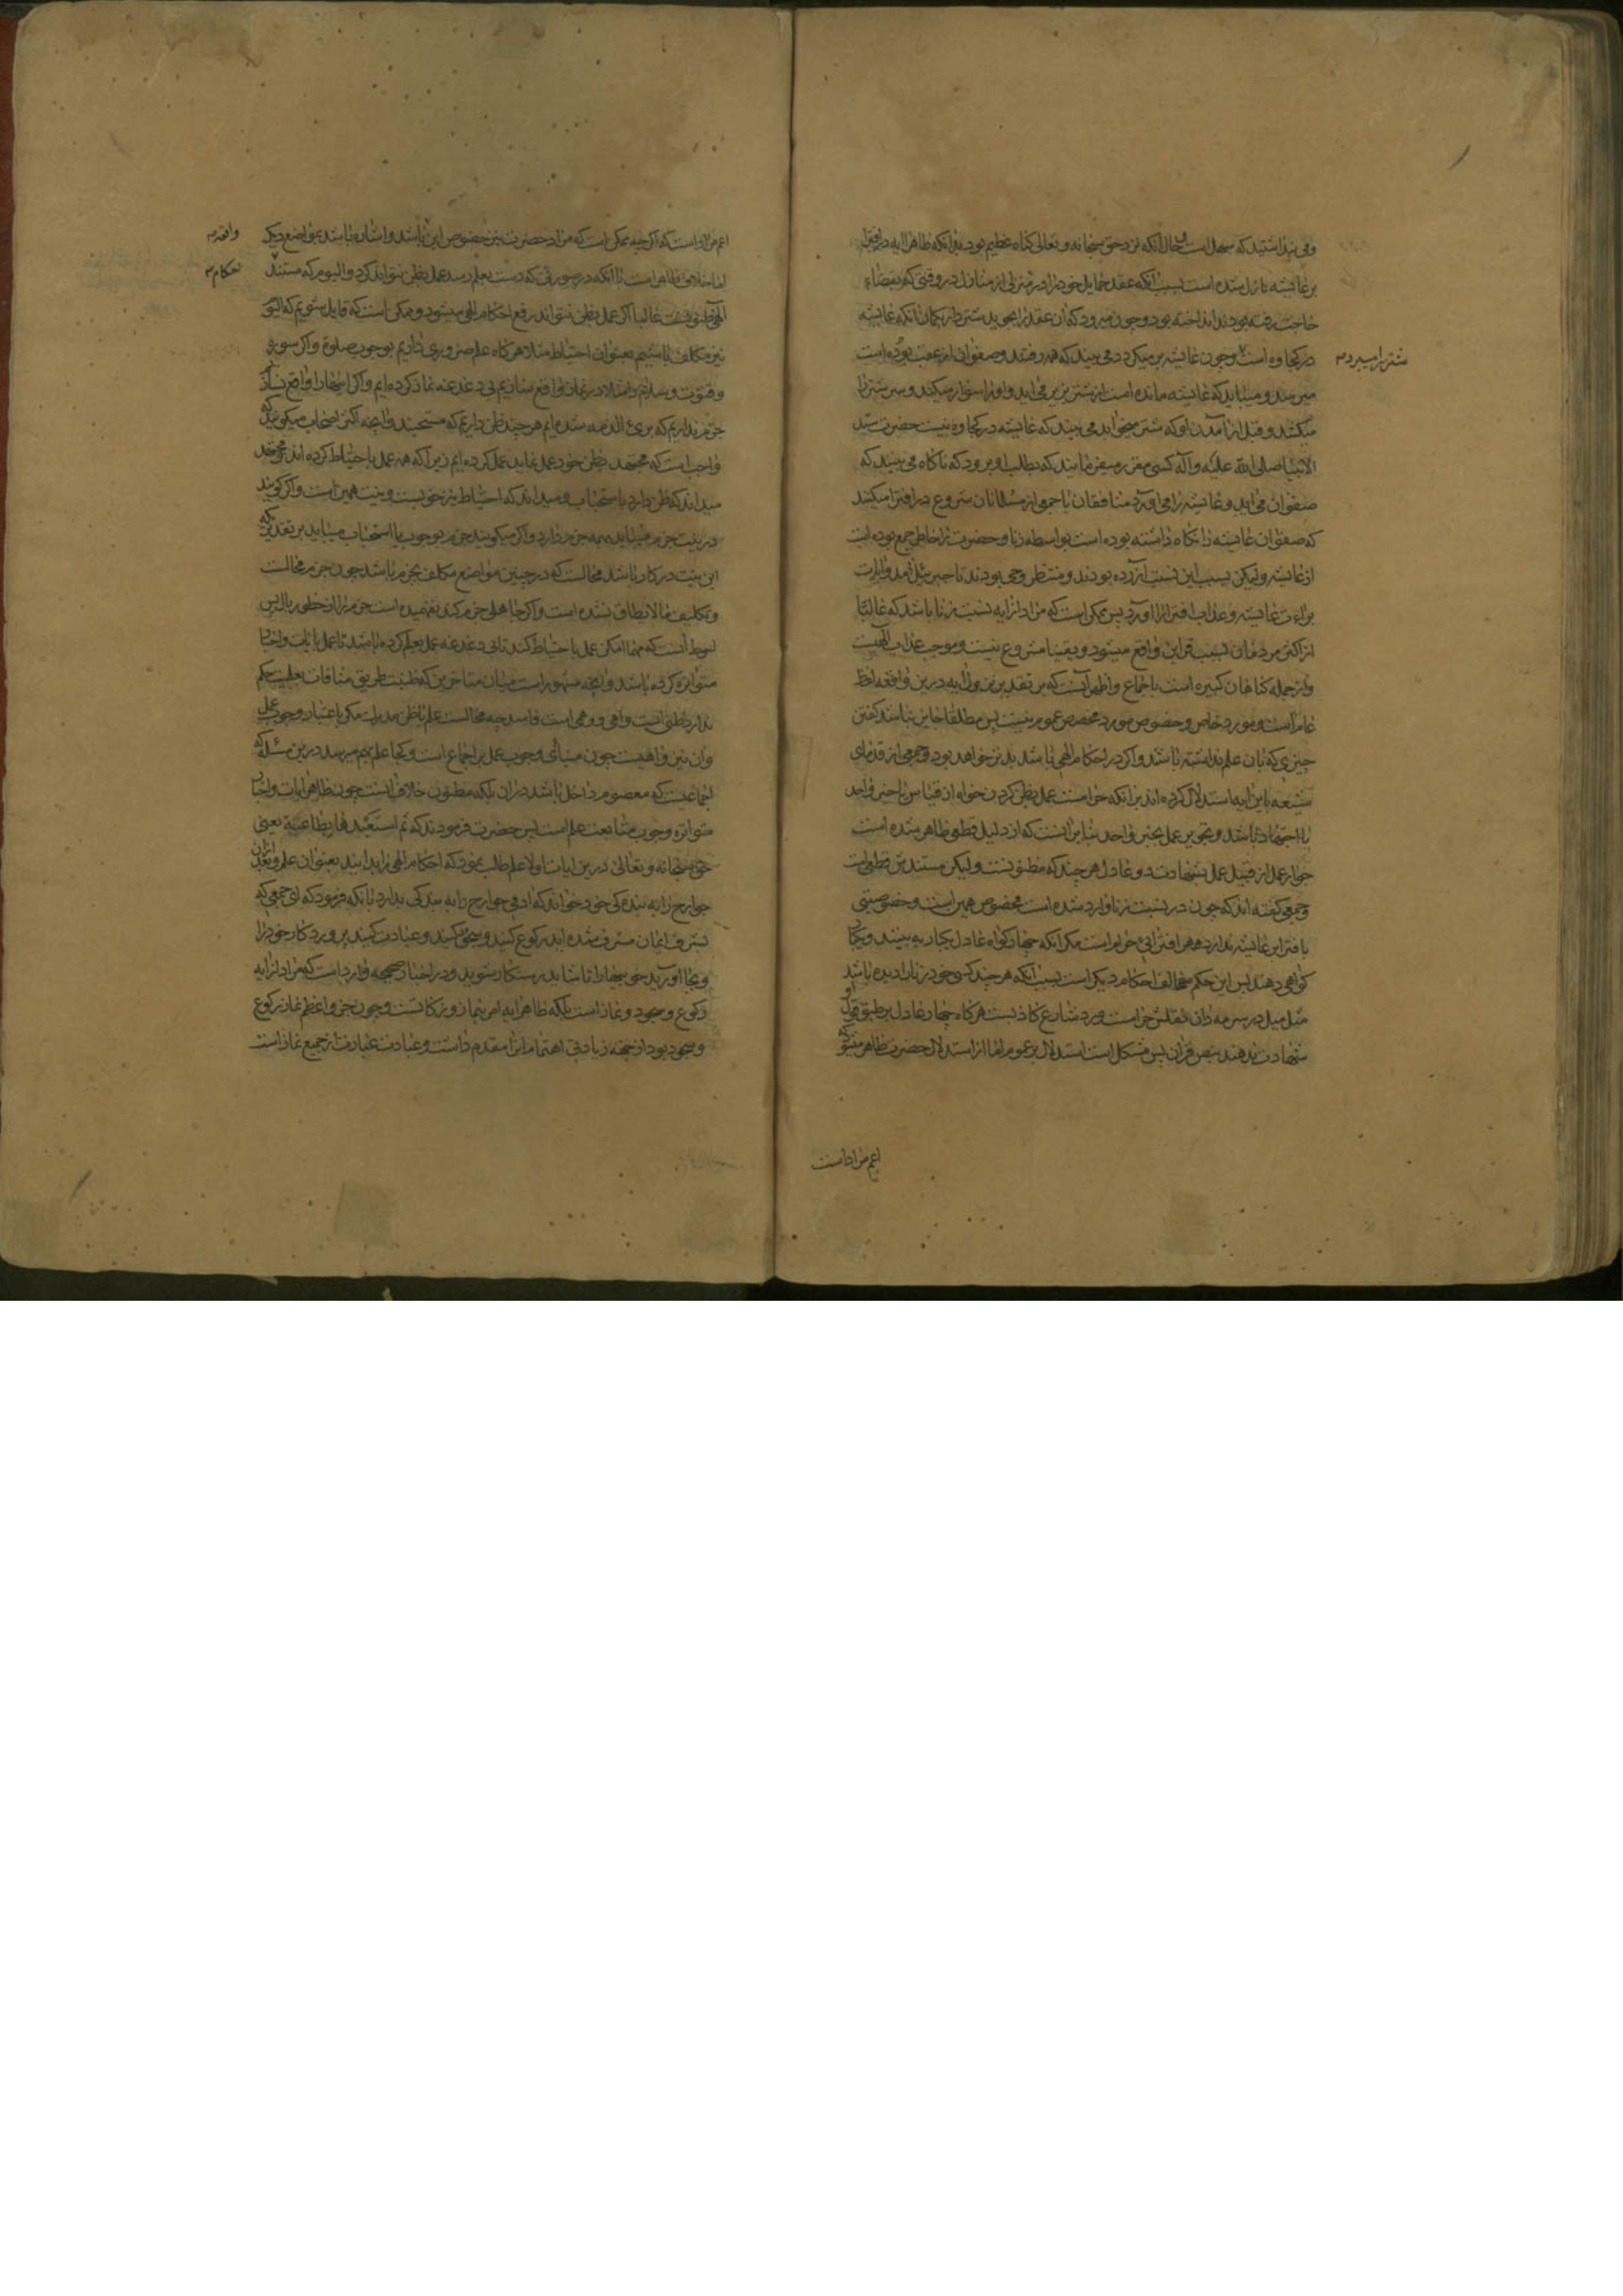 و می پنداشتید که سهل است و حال آنکه نزد حق سبحانه و تعالی کناه عظیم بود بدانکه ظاهرا آیه در افترا
بر عایشه نازل شده است بسبب آنکه عقد حمایل خود را در منزلی از منازل در وقتی که بقضاء
حاجت رفته بودند انداخته بود و چون میرود که آن عقد را بجوید شتردار بکمان آنکه عایشه
در کجاوه است و چون عایشه بر میکردد می بیند که همه رفتند و صفوان از عقب بوده است
شتر را میبرد
میرسد و میباید که عایشه مانده است از شتر بزیر می آید و او را سوار میکند و سر شتر را
میکشد و قبل از آمدن او که شتر میخوابد می بیند که عایشه در کجاوه نیست حضرت سید
الانبیا صلی الله علیه و آله کسی مقرر میفرمایند که بطلب او برود که ناکاه می بینند که
صفوان می آید و عایشه را می آورد منافقان با جمعی از مسلمانان شروع در افترا میکنند
که صفوان عایشه را نکاه داشته بوده است بواسطه زنا و حضرت را خاطر جمع بوده است
از عایشه و لیکن بسبب این نسبت آزرده بودند و منتظر وحی بودند تا جبرئیل آمد و آیات
براءت عایشه و عذاب افترا را آورد پس ممکن است که مراد از آیه نسبت زنا باشد که غالبا
از اکثر مردمان بسبب قراین واقع میشود و یقینا مشروع نیست و موجب عذاب الهیست
و از جمله کناهان کبیره است باجماع و اظهر آنست که بر تقدیر نزول آیه درین واقعه لفظ
عام است و مورد خاص و خصوص مورد مخصص عموم نیست پس مطلقا جایز نباشد کفتن
چیزی که بآن علم نداشته باشد و اکر در احکام الهی باشد بدتر خواهد بود و جمعی از قدمای
شیعه باین آیه استدلال کرده اند بر آنکه حرامست عمل بظن کردن خواه از قیاس یا خبر واحد
یا اجتهاد باشد و تجویز عمل بخبر واحد بنابر آنست که از دلیل قطعی ظاهر شده است
جواز عمل از قبیل عمل بشهادت دو عادل هر چند که مظنونست و لیکن مستندش قطعی است
و جمعی کفته اند که چون در نسبت زنا وارد شده است مخصوص همین است و خصوصیتی
بافترای عایشه ندارد هر افترایی حرام است مکر آنکه چهار کواه عادل یکبار به بینند و یکجا
کواهی دهند پس این حکم مخالف احکام دیکر است بسبب آنکه هر چند کسی خود زنا را دیده باشد
مثل میل در سرمه دان نقلش حرامست و نزد شارع کاذبست هرکاه چهار عادل بر طبق قول او
شهادت ندهند بنص قران پس مشکل است استدلال بر عموم اما از استدلال حضرت ظاهر میشود که
اعم مراد است
اعم مراد است که اکر چه ممکن است که مراد حضرت نیز خصوص این باشد و اشاره باشد بمواضع دیکر
واقعه
اما خلافی ظاهر است با آنکه در صورتی که دست بعلم رسد عمل بظن نتواند کرد و الیوم که مستند
احکام
الهی ظنونست غالبا اکر عمل بظن نتواند رفع احکام الهی میشود و ممکن است که قایل شویم که الیوم
نیز مکلف باشیم بعنوان احتیاط مثلا هرکاه علم ضروری داریم بوجوب صلوة و اکر سوره
و قنوت و سلام و امثالا در نماز واقع سازیم بی دغدغه نماز کرده ایم و اکر اینها را واقع نسازیم
جزم نداریم که بریء الذمه شده ایم هر چند ظن داریم که مستحبند و آنچه اکثر اصحاب میکویند که
واجب است که مجتهد بظن خود عمل نماید عمل کرده ایم زیرا که همه عمل باحتیاط کرده اند مجتهد
میداند که ظن دارد باستحباب و میداند که احتیاط نیز خوبست و نیت همین است و اکر کویند
در نیت جزم میباید همه جزم دارد و اکر میکویند جزم بوجوب یا استحباب میباید بر تقدیری که
این نیت در کار باشد محالست که در چنین مواضع مکلف بجزم باشد چون جزم محالست
و تکلیف ما لا یطاق نشده است و اکر جاهلی جزم کند نفهمیده است جزم را از خطور بالبس
احوط آنست که مهما امکن عمل باحتیاط کند تا بی دغدغه عمل بعلم کرده باشد تا عمل بآیات و اخبار
متواتره کرده باشد و آنچه مشهور است میان متاخرین که ظنیت طریق منافات بعلمیت حکم
ندارد ظنی است واهی و وهمی است فاسد چه محالست علم با ظن مدرک مکر باعتبار وجوب عمل
و آن نیز واهیست چون مبنای وجوب عمل بر اجماع است و کجا علم بهم میرسد درین مسئله که
اجماعیست که معصوم داخل باشد در آن بلکه مظنون خلاف آنست چون ظاهر آیات و اخبار
متواتره وجوب متابعت علم است پس حضرت فرمودند که ثم استعبدها بطاعته یعنی
حق سبحانه و تعالی درین آیات اولا علم طلب نمود که احکام الهی را بدانید بعنوان علم و بعد از آن
جوارح را به بندکی خود خواند که آدمی جوارح را به بندکی بدارد بآنکه فرمود که ای جمعی که
بشرف ایمان مشرف شده اید رکوع کنید و سجود کنید و عبادت کنید پروردکار خود را
و بجا آورید خوبیها را تا شاید رستکار شوید و در اخبار صحیحه وارد است که مراد از آیه
رکوع و سجود و نماز است بلکه ظاهر آیه امر بنماز و زکاتست و چون جزو اعظم نماز رکوع
و سجود بود از جهة زیادتی اهتمام آنرا مقدم داشت و عبادت عبارت از جمیع نماز است